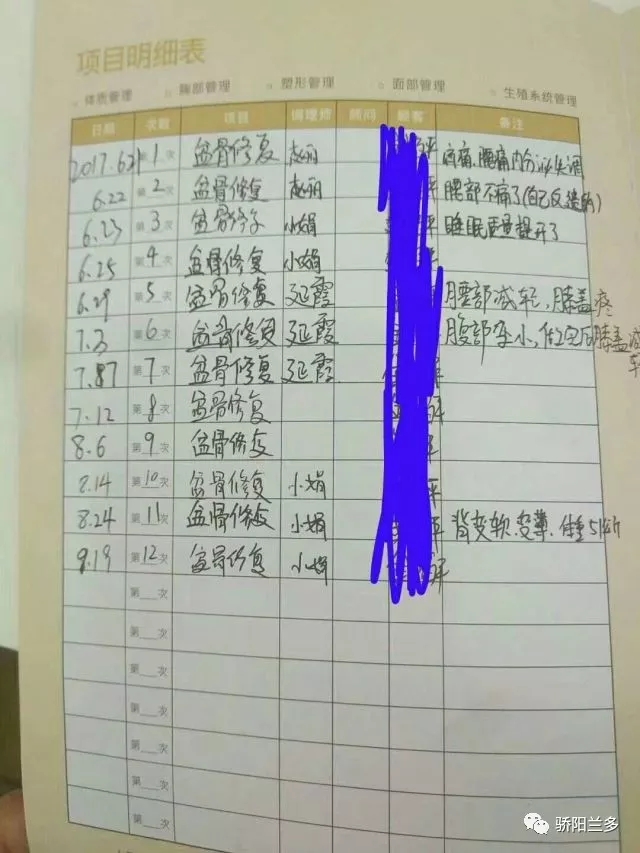 项目明细表
体表管理 胸部管理 塑形管理 面部管理 生殖系统管理
日期 次数 项目 调理师 顾问 顾客 备注
2017.6.21 第1次 盆骨修复 赵丽 腰痛内分泌失调
6.22 第2次 盆骨修复 赵丽 腰部不痛了(自己反馈的)
6.23 第3次 盆骨修复 小娟 睡眠质量提升了
6.25 第4次 盆骨修复 小娟
6.29 第5次 盆骨修复 延霞 腰部减轻,膝盖疼
7.3 第6次 盆骨修复 延霞 腹部变小,做完后膝盖减轻
7.87 第7次 盆骨修复 延霞
7.12 第8次 盆骨修复
8.6 第9次 盆骨修复
8.14 第10次 盆骨修复 小娟
8.24 第11次 盆骨修复 小娟 背变软、变薄、体重
9.19 第12次 盆骨修复 小娟
第__次
第__次
第__次
第__次
第__次
第__次
骄阳兰多